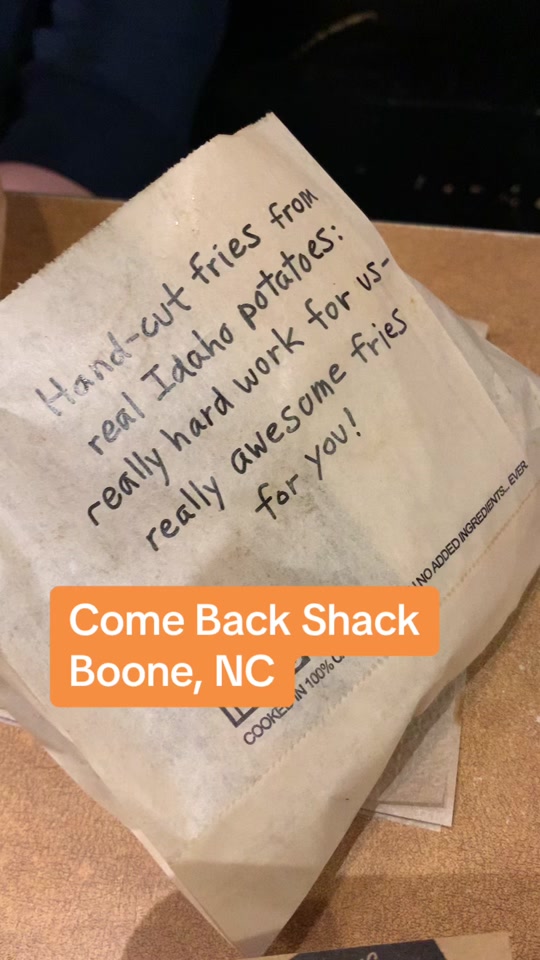 Hand-cut fries from
real Idaho potatoes:
really hard work for us-
really awesome fries
for you!
NO ADDED INGREDIENTS... EVER.
Come Back Shack
Boone, NC
COOKED IN 100%